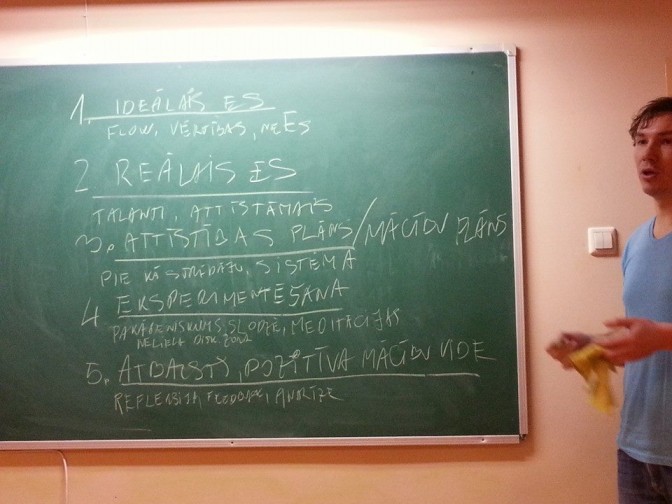 1. IDEĀLAIS ES
FLOW, VĒRTĪBAS, NEES
2 REĀLAIS ES
TALANTI, ATTĪSTĀMAIS
3. ATTĪSTĪBAS PLĀNS/MĀCĪBU PLĀNS
PIE KĀ STRĒDĀŠU, SISTĒMA
4 EKSPERIMENTĒŠANA
SLODZE, MEDITĀCIJAS
NELIELA DISK. ZONA
5. ATBALSTS, POZITĪVA MĀCĪBU VIDE
REFLEKSIJA, FEEDBACK, ANALĪZE